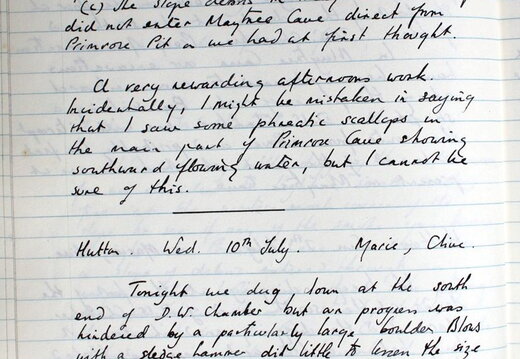 (c) The slope debris in
did not enter Maytree Cave direct from
Primrose Pit as we had at first thought.
A very rewarding afternoons work.
Incidentally, I might be mistaken in saying
that I saw some phreatic scallops in
the main part of Primrose Cave showing
southward flowing water, but I cannot be
sure of this.
Hutton. Wed. 10th July. Marie, Clive.
Tonight we dug down at the south
end of D.W. Chamber but our progress was
hindered by a particularly large boulder Blows
with a sledge hammer did little to lessen the size